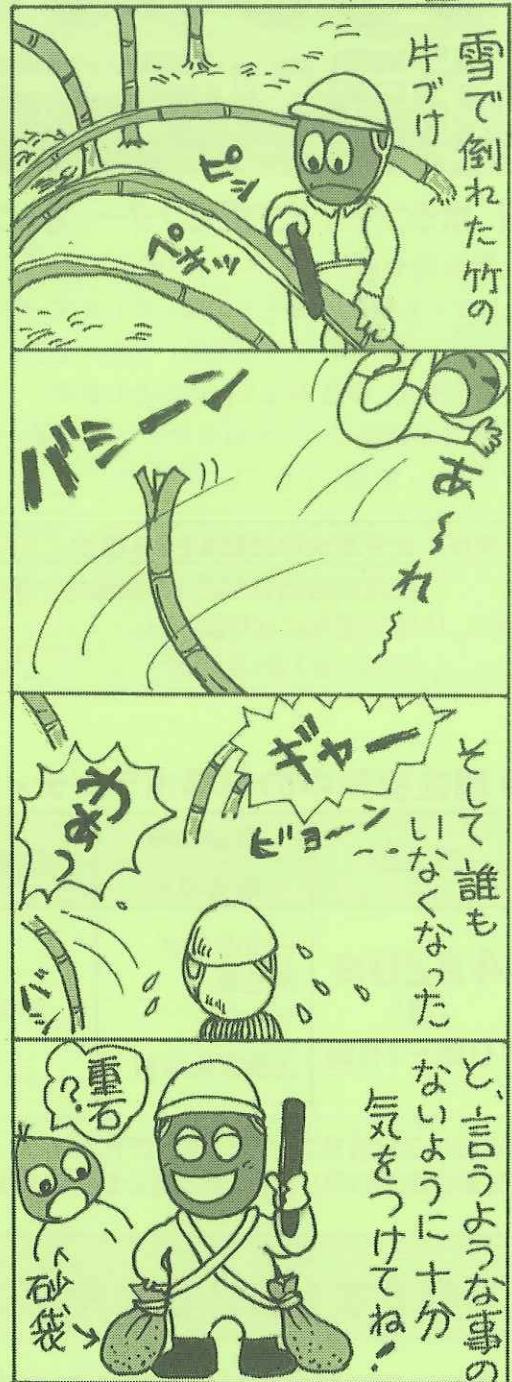 雪で倒れた竹の
片づけ
ペキッ
バシーーン
あ〜〜れ〜〜
そして誰も
いなくなった
ギャー
ビョーン
うわぁっ
バシッ
と、言うような事の
ないように十分
気をつけてね!
重石
?
砂袋